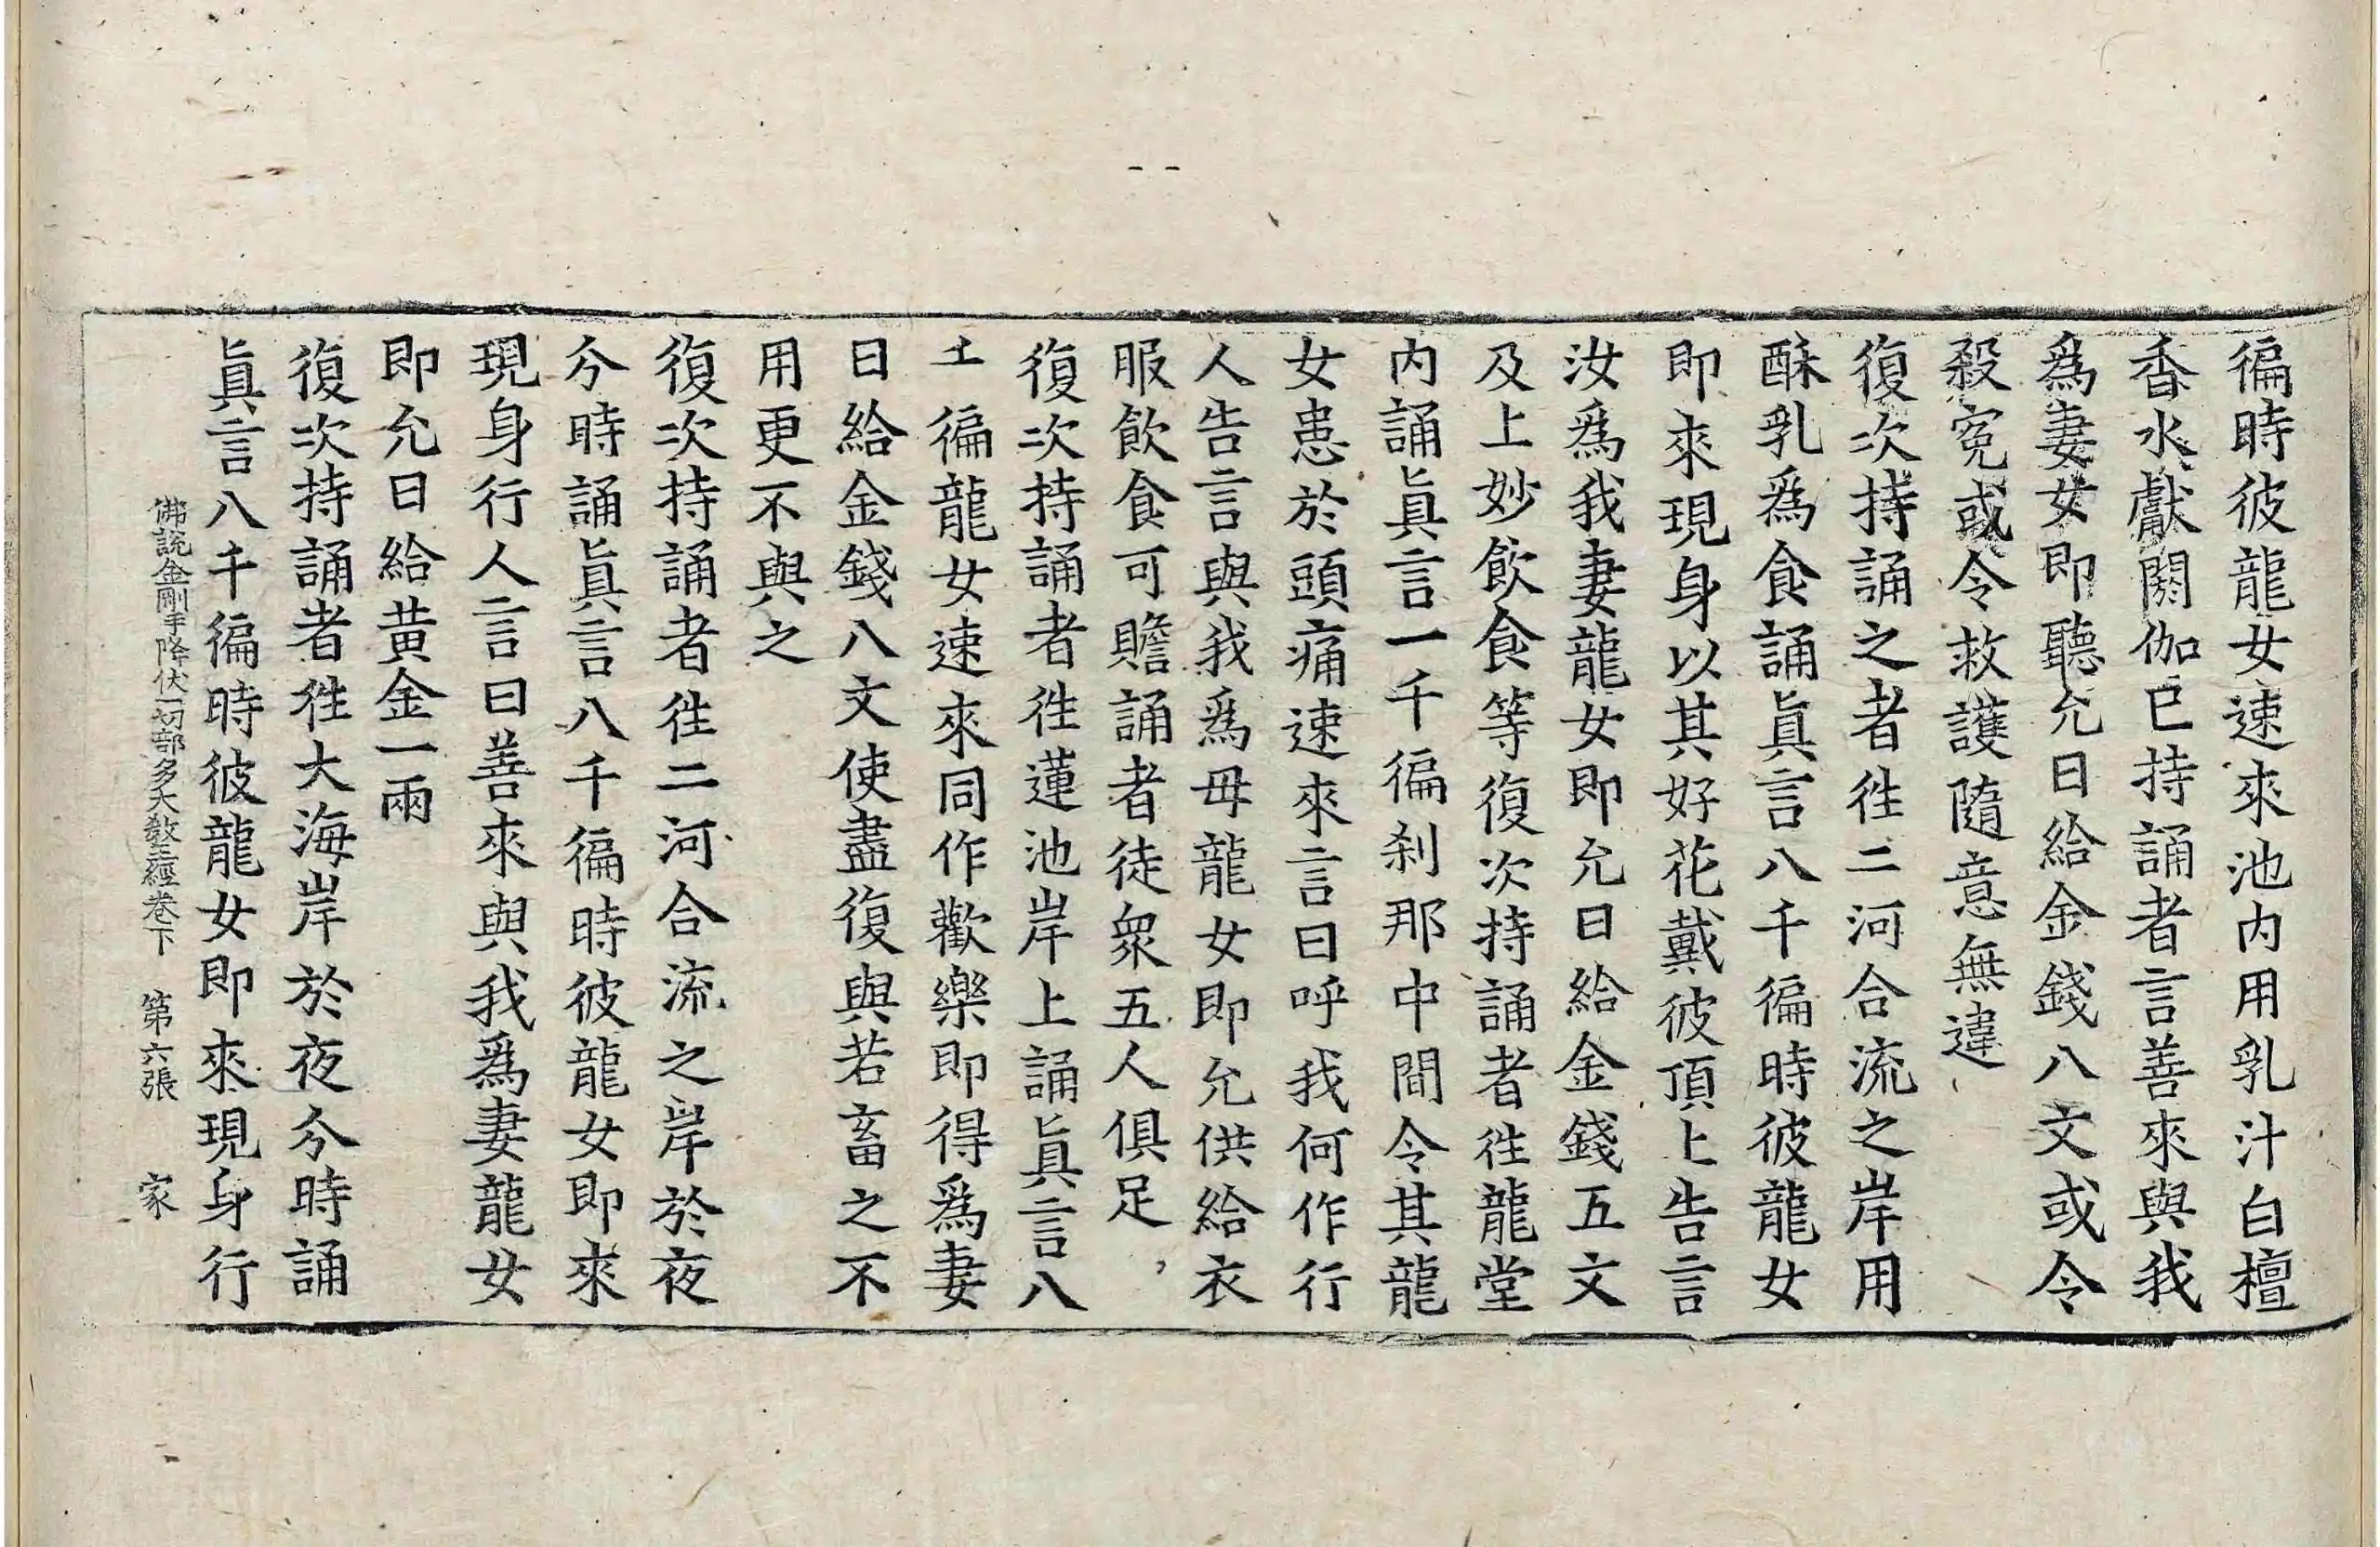 徧時彼龍女速來池内用乳汁白檀
香水獻閼伽已持誦者言善來與我
爲妻女即聽允日給金錢八文或令
殺寃或令救護隨意無違
復次持誦之者徃二河合流之岸用
酥乳爲食誦眞言八千徧時彼龍女
即來現身以其好花戴彼頂上告言
汝爲我妻龍女即允日給金錢五文
及上妙飲食等復次持誦者徃龍堂
内誦眞言一千徧刹那中間令其龍
女患於頭痛速來言曰呼我何作行
人告言與我爲母龍女即允供給衣
服飲食可贍誦者徒衆五人俱足
復次持誦者徃蓮池岸上誦眞言八
千徧龍女速來同作歡樂即得爲妻
日給金錢八文使盡復與若畜之不
用更不與之
復次持誦者徃二河合流之岸於夜
分時誦眞言八千徧時彼龍女即來
現身行人言曰善來與我爲妻龍女
即允日給黄金一兩
復次持誦者徃大海岸於夜分時誦
眞言八千徧時彼龍女即來現身行
佛說金剛手降伏一切部多大教王經卷下 第六張 家